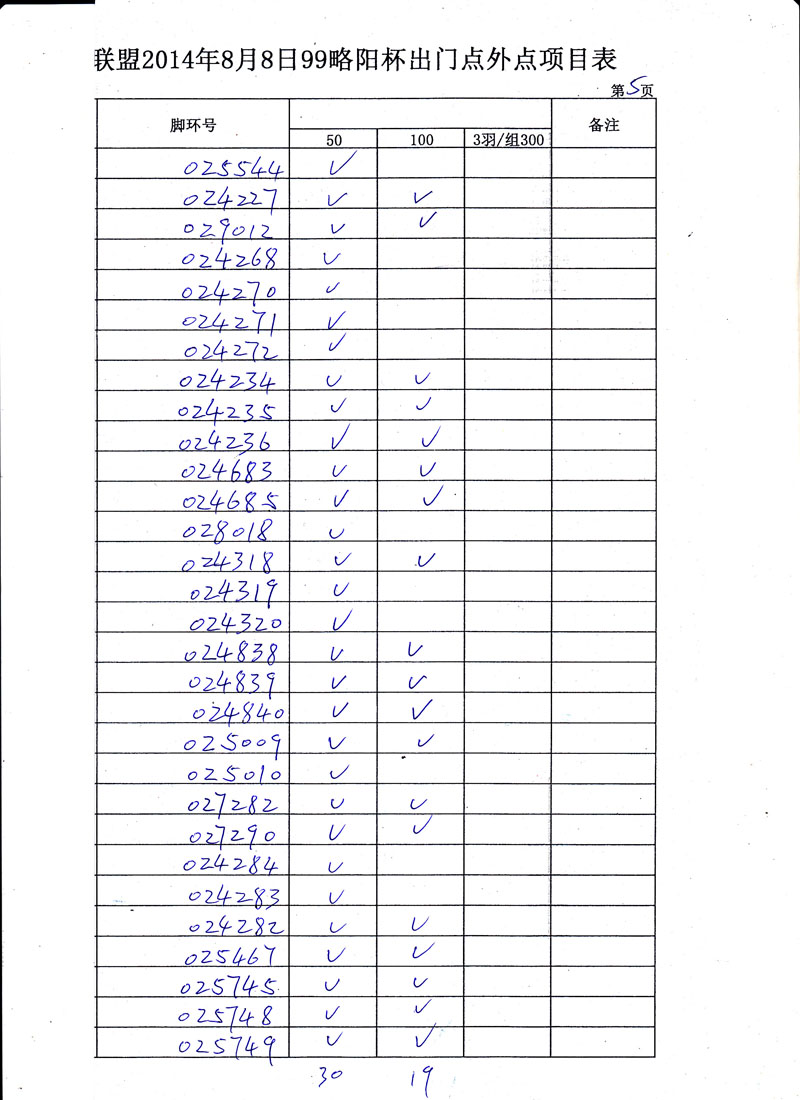 联盟2014年8月8日99略阳杯出门点外点项目表
第5页
脚环号 50 100 3羽/组300 备注
025544 ✓
024227 ✓ ✓
029012 ✓ ✓
024268 ✓
024270 ✓
024271 ✓
024272 ✓
024234 ✓ ✓
024235 ✓ ✓
024236 ✓ ✓
024683 ✓ ✓
024685 ✓ ✓
028018 ✓
024318 ✓ ✓
024319 ✓
024320 ✓
024838 ✓ ✓
024839 ✓ ✓
024840 ✓ ✓
025009 ✓ ✓
025010 ✓
027282 ✓ ✓
027290 ✓ ✓
024284 ✓
024283 ✓
024282 ✓ ✓
025467 ✓ ✓
025745 ✓ ✓
025748 ✓ ✓
025749 ✓ ✓
30 19